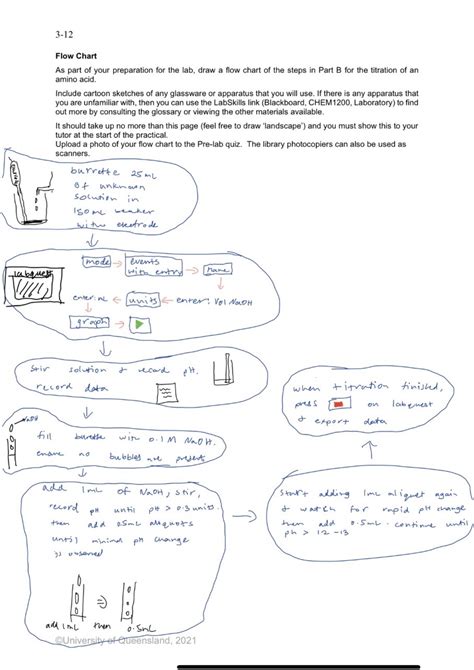 3-12
Flow Chart
As part of your preparation for the lab, draw a flow chart of the steps in Part B for the titration of an
amino acid.
Include cartoon sketches of any glassware or apparatus that you will use. If there is any apparatus that
you are unfamiliar with, then you can use the LabSkills link (Blackboard, CHEM1200, Laboratory) to find
out more by consulting the glossary or viewing the other materials available.
It should take up no more than this page (feel free to draw 'landscape') and you must show this to your
tutor at the start of the practical.
Upload a photo of your flow chart to the Pre-lab quiz. The library photocopiers can also be used as
scanners.
burrette 25mL
of unknown
solution in
150mL beaker
with electrode
labquest
mode → events with entry → name
enter: mL ← units ← enter: Vol NaOH
graph →
stir solution & record pH.
record data
NaOH
fill burette with 0.1M NaOH.
ensure no bubbles are present
add 1mL of NaOH, stir,
record pH until pH > 0.3 units.
then add 0.5mL aliquots
until minimal pH change
is observed
add 1mL then 0.5mL
start adding 1mL aliquot again
& watch for rapid pH change
then add 0.5mL. continue until
pH > 12-13
when titration finished,
press on labquest
& export data
©University of Queensland, 2021